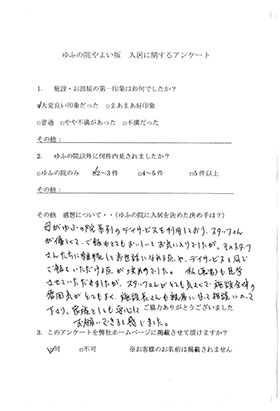 ゆふの院やよい坂　入居に関するアンケート
1. 施設・お部屋の第一印象は如何でしたか?
☑大変良い印象だった □まあまあ好印象
□普通 □やや不満があった □不満だった
その他：
2. ゆふの院以外に何件内見されましたか?
□ゆふの院のみ ☑2～3件 □4～5件 □5件以上
その他：
その他　感想について・・（ゆふの院に入居を決めた決め手は?）
母がゆふの院系列のデイサービスを利用しており、スタッフさん
が優しくて、ご飯もとてもおいしいとお気に入りでしたが、そのスタッフ
さんたちに継続してお世話になれる点や、デイサービスと同じ
ご飯をいただける点が決めてでした。 私（長女）も見学
させていただきましたが、スタッフさんがとても良くて施設全体の
雰囲気がとてもよく、施設長さんも親身になって相談にのって
下さり、家族としても安心して
ご協力ありがとうございました
お願いできると感じました。
3. このアンケートを弊社ホームページに掲載させて頂けますか?
☑可 □不可 ※お客様のお名前は掲載されません